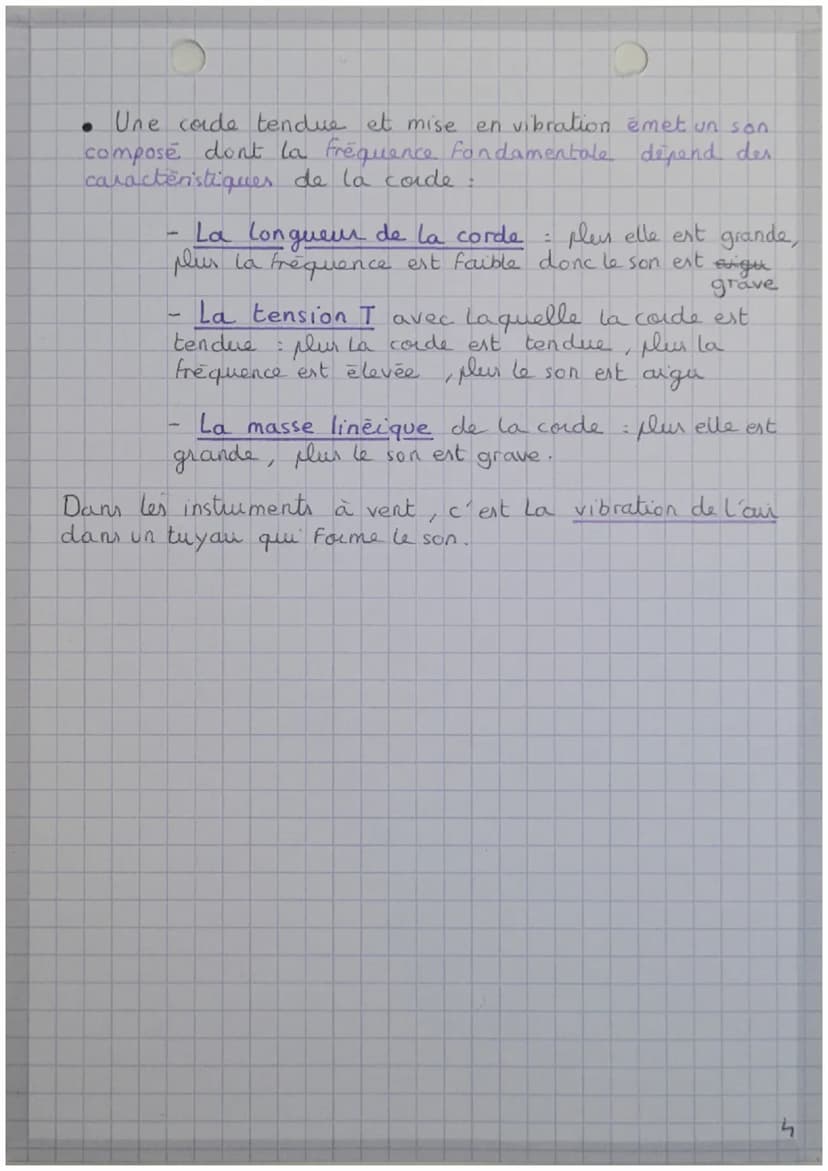 • Une corde tendue et mise en vibration émet un son
composé dont la fréquence fondamentale dépend des
caractéristiques de la corde :
- La longueur de la corde : plus elle est grande,
plus la fréquence est faible donc le son est aigu
grave
- La tension T avec laquelle la corde est
tendue : plus la corde est tendue, plus la
fréquence est élevée, plus le son est aigu
- La masse linéique de la corde : plus elle est
grande, plus le son est grave.
Dans les instruments à vent, c'est la vibration de l'air
dans un tuyau qui forme le son.
4